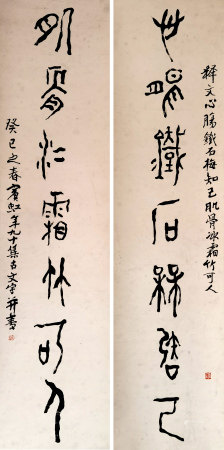 釋文心腸鐵石梅知己肌骨冰霜竹可人
心腸鐵石梅知己
肌骨冰霜竹可人
癸巳之春賓虹年九十集古文字并書